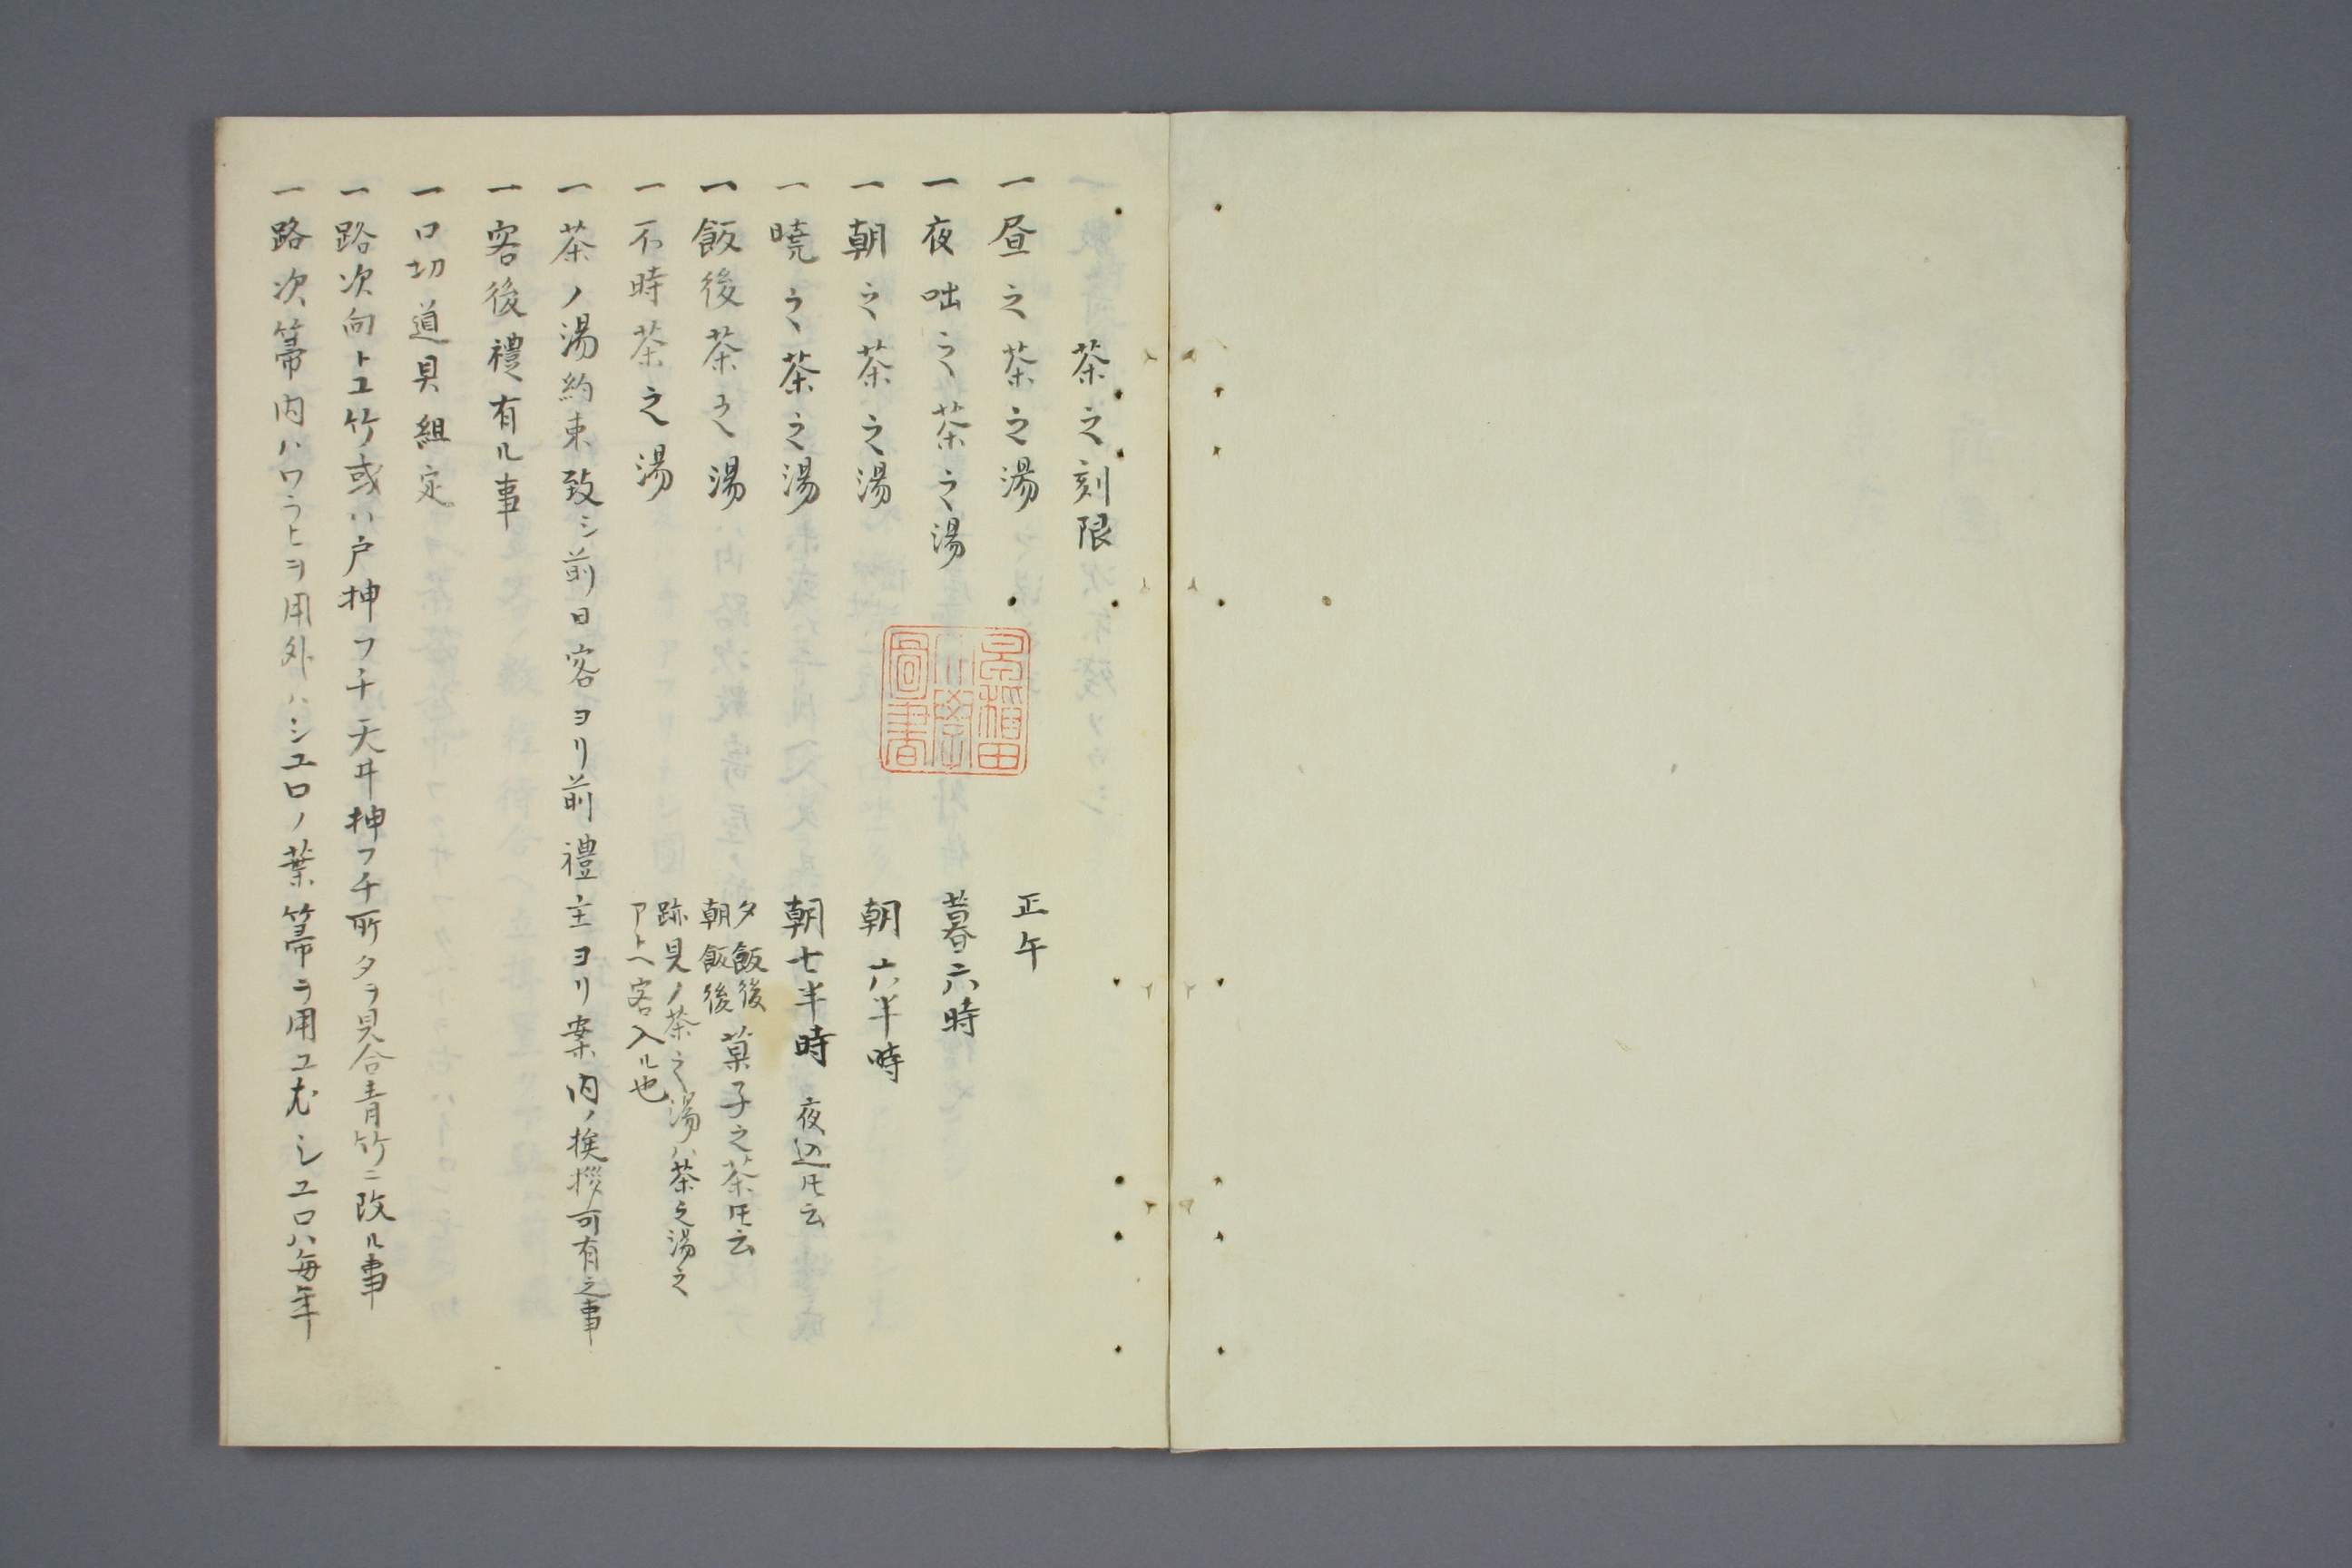 茶之刻限
一昼之茶之湯 正午
一夜咄之茶之湯 暮六時
一朝之茶之湯 朝六半時
一暁之茶之湯 朝七半時 夜込𪜈云
一飯後茶之湯 夕飯後
朝飯後 菓子之茶𪜈云
一不時茶之湯 跡見ノ茶之湯ハ茶之湯之
アトヘ客入ル也
一茶ノ湯約束致シ前日客ヨリ前禮主ヨリ案内ノ挨拶可有之事
一客後禮有ル事
一口切道具組定
一路次向トユ竹ノ或ハ戸押フチ天井押フチ所々ヲ見合青竹ニ改ル事
一路次箒内ハワラヒヲ用外ハシユロノ葉箒ヲ用ユ尤シユロハ毎年
早稲田大學圖書